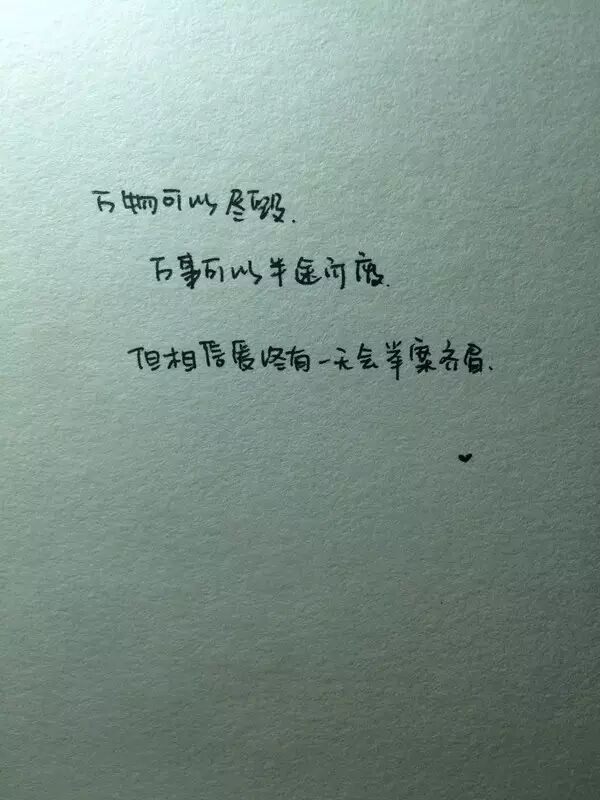 万物可以尽毁.
万事可以半途而废.
但相信爱终有一天会举案齐眉.